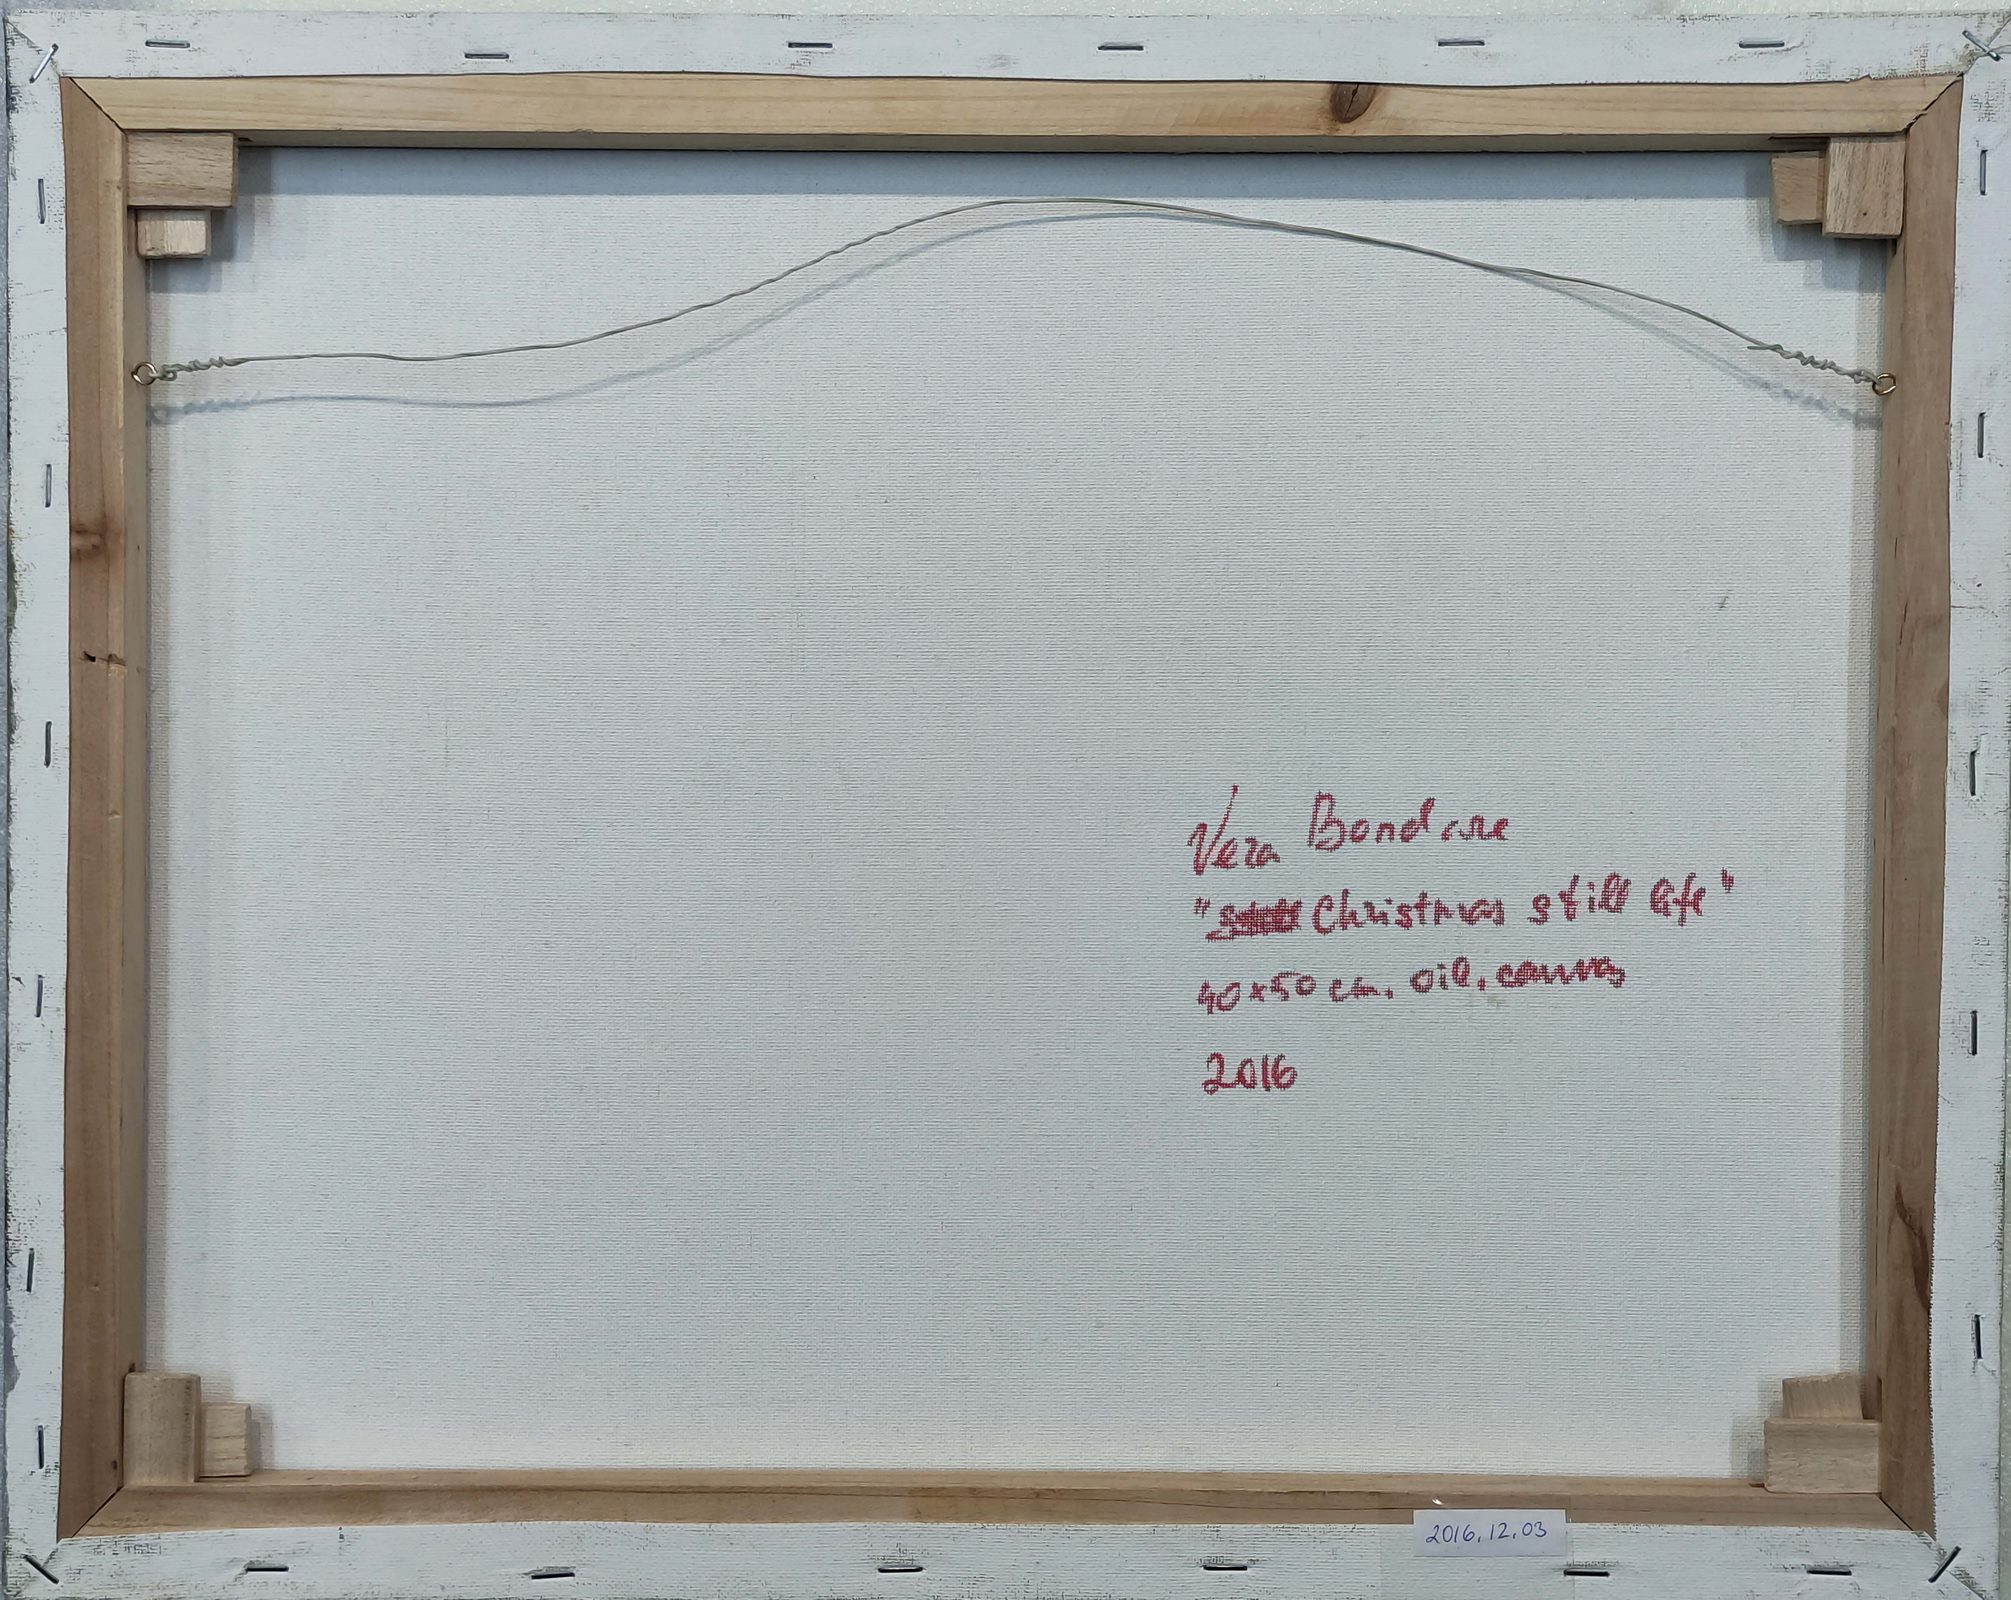 Vera Bondare
" Christmas still life"
40x50 cm. oil. canvas
2016
2016.12.03